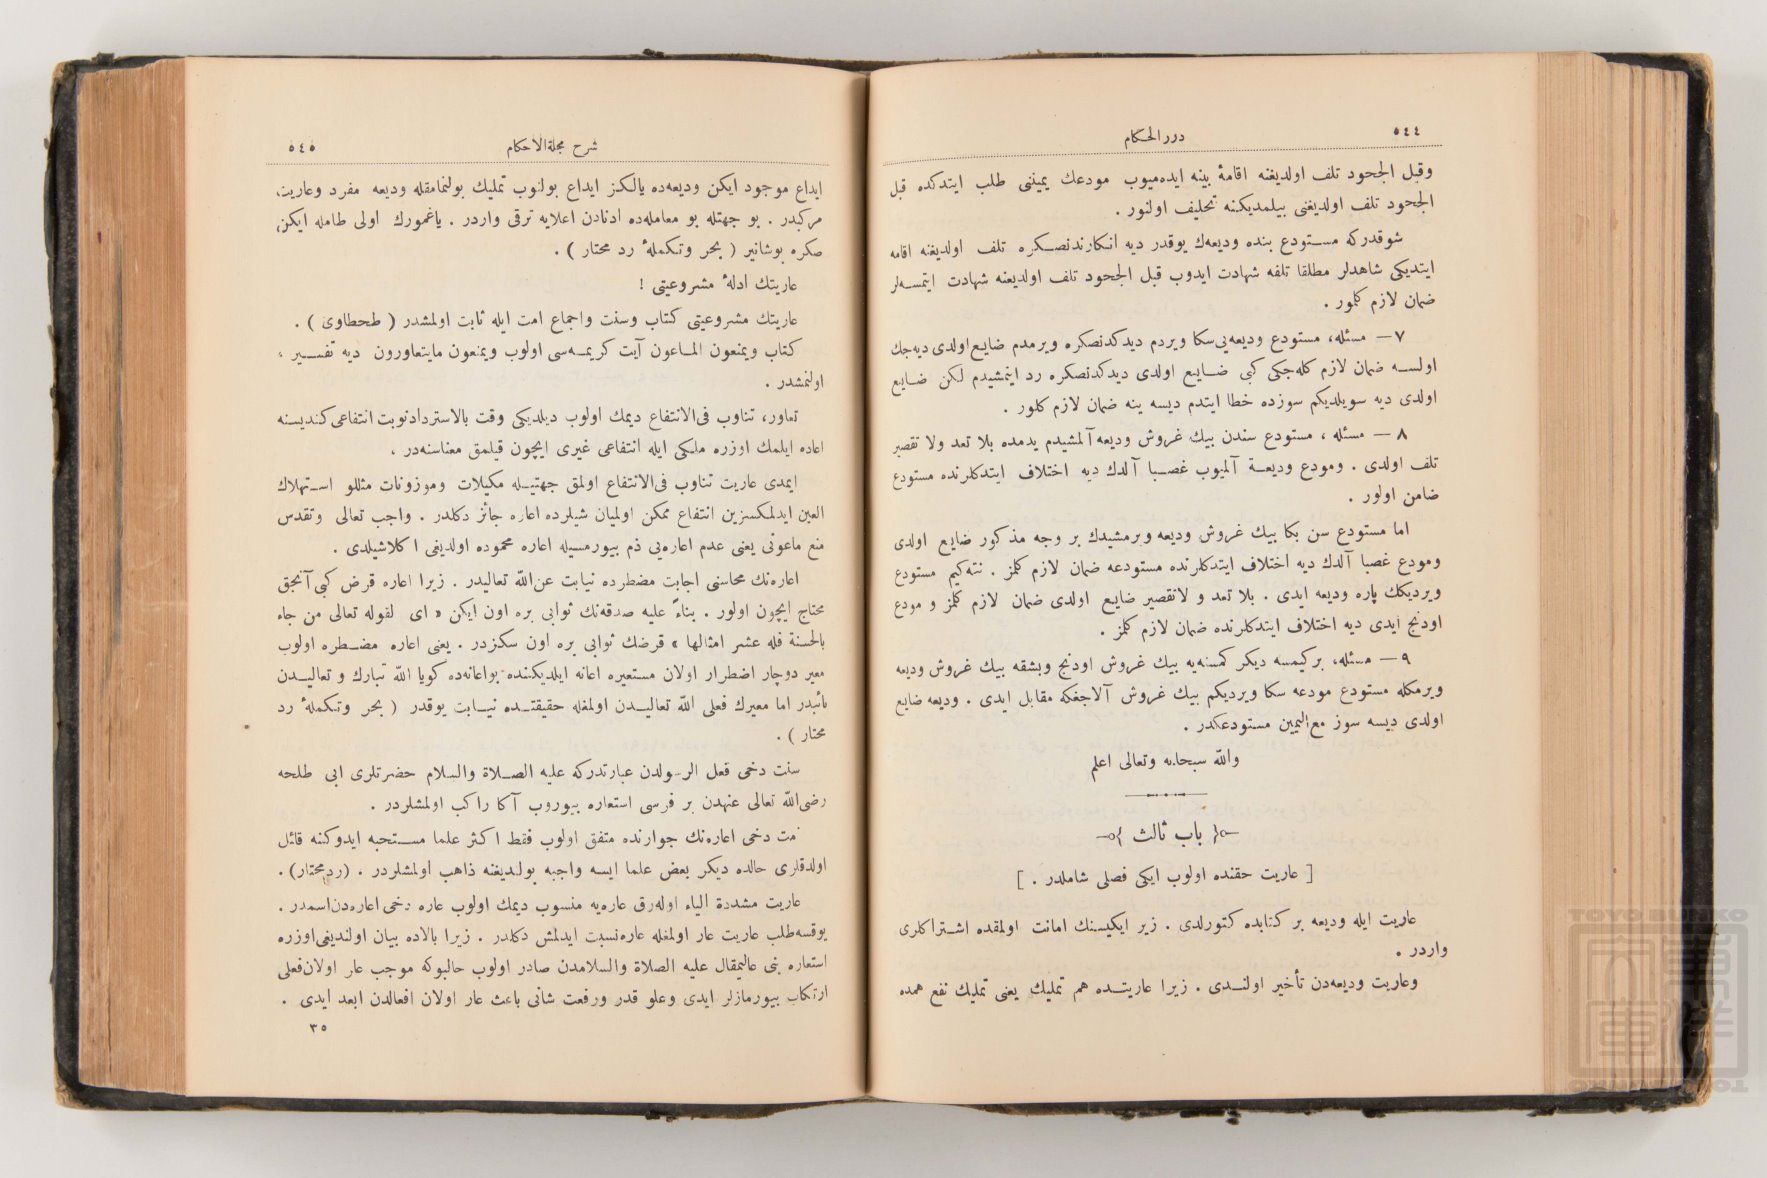 ٥٤٤
درر الحكام
وقبل الجحود تلف اولديغنه اقامهٔ بينه ايده‌ميوب مودعك يميننى طلب ايتدكده قبل
الجحود تلف اولديغنى بيلمديكنه تحليف اولنور .
شوقدركه مستودع بنده وديعه‌ك يوقدر ديه انكارندنصكره تلف اولديغنه اقامه
ايتديكى شاهدلر مطلقا تلفه شهادت ايدوب قبل الجحود تلف اولديغنه شهادت ايتمسه‌لر
ضمان لازم كلور .
٧ — مسئله، مستودع وديعه‌يى سكا ويردم ديدكدنصكره ويرمدم ضايع اولدى ديه‌جك
اولسه ضمان لازم كله‌جكى كبى ضايع اولدى ديدكدنصكره رد ايتمشيدم لكن ضايع
اولدى ديه سويلديكم سوزده خطا ايتدم ديسه ينه ضمان لازم كلور .
٨ — مسئله ، مستودع سندن بيك غروش وديعه آلمشيدم يدمده بلا تعد ولا تقصير
تلف اولدى . ومودع وديعة آلميوب غصبا آلدك ديه اختلاف ايتدكلرنده مستودع
ضامن اولور .
اما مستودع سن بكا بيك غروش وديعه ويرمشيدك بر وجه مذكور ضايع اولدى
ومودع غصبا آلدك ديه اختلاف ايتدكلرنده مستودعه ضمان لازم كلمز . نته‌كيم مستودع
ويرديكك پاره وديعه ايدى . بلا تعد و لاتقصير ضايع اولدى ضمان لازم كلمز و مودع
اودنج ايدى ديه اختلاف ايتدكلرنده ضمان لازم كلمز .
٩ — مسئله، بركيمسه ديكر كمسنه‌يه بيك غروش اودنج وبشقه بيك غروش وديعه
ويرمكله مستودع مودعه سكا ويرديكم بيك غروش آلاجغكه مقابل ايدى . وديعه ضايع
اولدى ديسه سوز مع اليمين مستودعكدر .
والله سبحانه وتعالى اعلم
باب ثالث
[ عاريت حقنده اولوب ايكى فصلى شاملدر . ]
عاريت ايله وديعه بر كتابده كتورلدى . زير ايكيسنك امانت اولمقده اشتراكلرى
واردر .
وعاريت وديعه‌دن تأخير اولندى . زيرا عاريتده هم تمليك يعنى تمليك نفع همده
شرح مجلة الاحكام
٥٤٥
ايداع موجود ايكن وديعه‌ده يالكز ايداع بولنوب تمليك بولنمامقله وديعه مفرد وعاريت
مركبدر . بو جهتله بو معامله‌ده ادنادن اعلايه ترقى واردر . ياغمورك اولى طامله ايكن
صكره بوشانير ( بحر وتكملهٔ رد محتار ) .
عاريتك ادلهٔ مشروعيتى !
عاريتك مشروعيتى كتاب وسنت واجماع امت ايله ثابت اولمشدر ( طحطاوى ) .
كتاب ويمنعون الماعون آيت كريمه‌سى اولوب ويمنعون مايتعاورون ديه تفسير
اولنمشدر .
تعاور، تناوب فى‌الانتفاع ديمك اولوب ديلديكى وقت بالاسترداد نوبت انتفاعى كنديسنه
اعاده ايلمك اوزره ملكى ايله انتفاعى غيرى ايچون قيلمق معناسنه‌در .
ايمدى عاريت تناوب فى‌الانتفاع اولمق جهتيله مكيلات وموزونات مثللو استهلاك
العين ايدلمكسزين انتفاع ممكن اولميان شيلرده اعاره جائز دكلدر . واجب تعالى وتقدس
منع ماعونى يعنى عدم اعاره‌يى ذم بيورمسيله اعاره محموده اولديغى اكلاشيلدى .
اعاره‌نك محاسنى اجابت مضطرده نيابت عن الله تعاليدر . زيرا اعاره قرض كبى آنجق
محتاج ايچون اولور . بناءً عليه صدقه‌نك ثوابى بره اون ايكن « اى لقوله تعالى من جاء
بالحسنة فله عشر امثالها » قرضك ثوابى بره اون سكزدر . يعنى اعاره مضطره اولوب
معير دوچار اضطرار اولان مستعيره اعانه ايلديكننده بواعانه‌ده كويا الله تبارك و تعاليدن
نائبدر اما معيرك فعلى الله تعاليدن اولمغله حقيقتده نيابت يوقدر ( بحر وتكملهٔ رد
محتار ) .
سنت دخى فعل الرسولدن عبارتدركه عليه الصلاة والسلام حضرتلرى ابى طلحه
رضى الله تعالى عنهدن بر فرسى استعاره بيوروب آكا راكب اولمشلردر .
امت دخى اعاره‌نك جوازنده متفق اولوب فقط اكثر علما مستحبه ايدوكنه قائل
اولدقلرى حالده ديكر بعض علما ايسه واجبه بولنديغنه ذاهب اولمشلردر . (رد محتار) .
عاريت مشددة الياء اوله‌رق عاره‌يه منسوب ديمك اولوب عاره دخى اعاره‌دن اسمدر .
يوقسه طلب عاريت عار اولمغله عاره نسبت ايدلمش دكلدر . زيرا بالاده بيان اولنديغى اوزره
استعاره نبى عاليمقال عليه الصلاة والسلامدن صادر اولوب حالبوكه موجب عار اولان فعلى
ارتكاب بيورمازلر ايدى وعلو قدر ورفعت شانى باعث عار اولان افعالدن ابعد ايدى .
٣٥
TOYO BUNKO